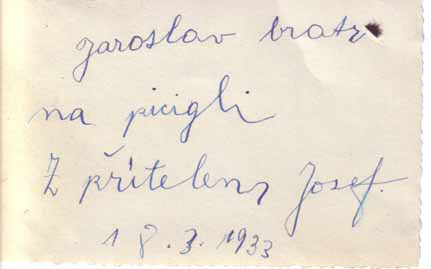 Jaroslav bratr
na picigli
Z přítelem Josef.
18.3.1933